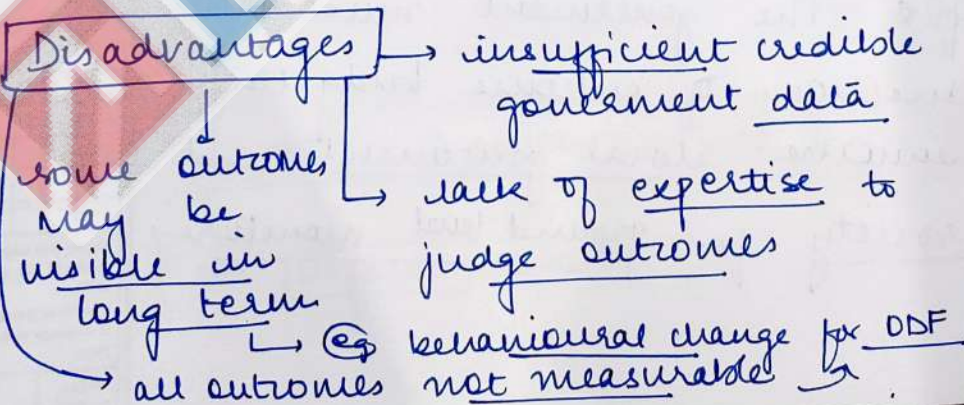 Disadvantages → insufficient credible
government data
some outcomes
may be
visible in
long term
→ lack of expertise to
judge outcomes
→ eg behavioural change for ODF
→ all outcomes not measurable